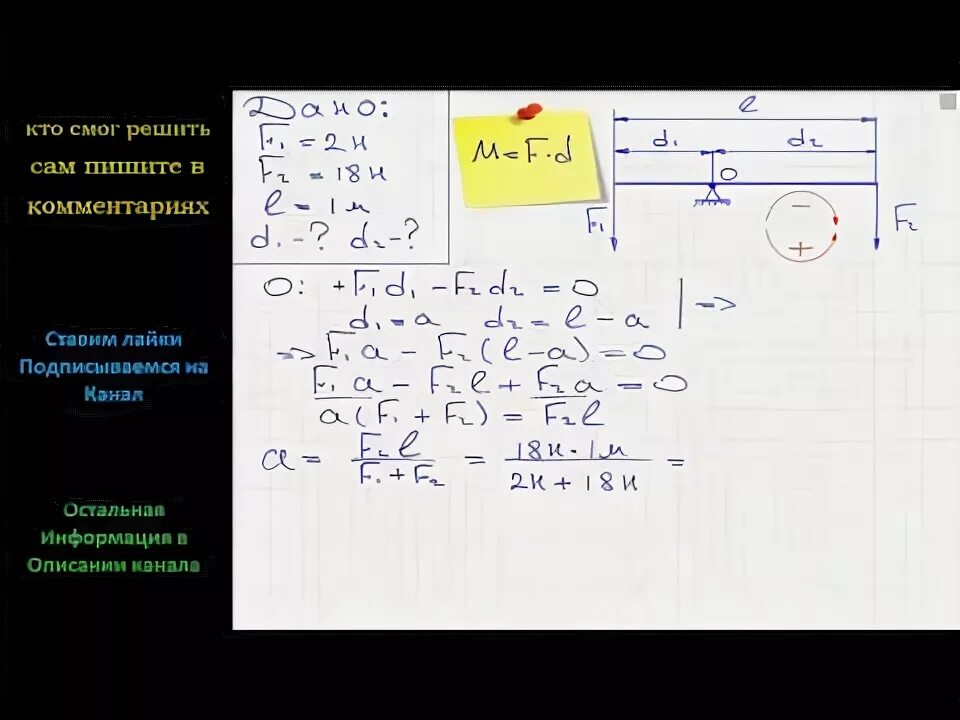 кто смог решить
сам пишите в
комментариях
Ставим лайки
Подписываемся на
Канал
Остальная
Информация в
Описании канала
Дано:
F₁ = 2н
F₂ = 18н
ℓ = 1м
d₁ - ? d₂ - ?
M = F·d
ℓ
d₁ d₂
O
F₁ F₂
− +
O: +F₁d₁ − F₂d₂ = 0
d₁ = a d₂ = ℓ − a | =>
=> F₁a − F₂(ℓ − a) = 0
F₁a − F₂ℓ + F₂a = 0
a(F₁ + F₂) = F₂ℓ
a = F₂ℓ / F₁ + F₂ = 18н · 1м / 2н + 18н =